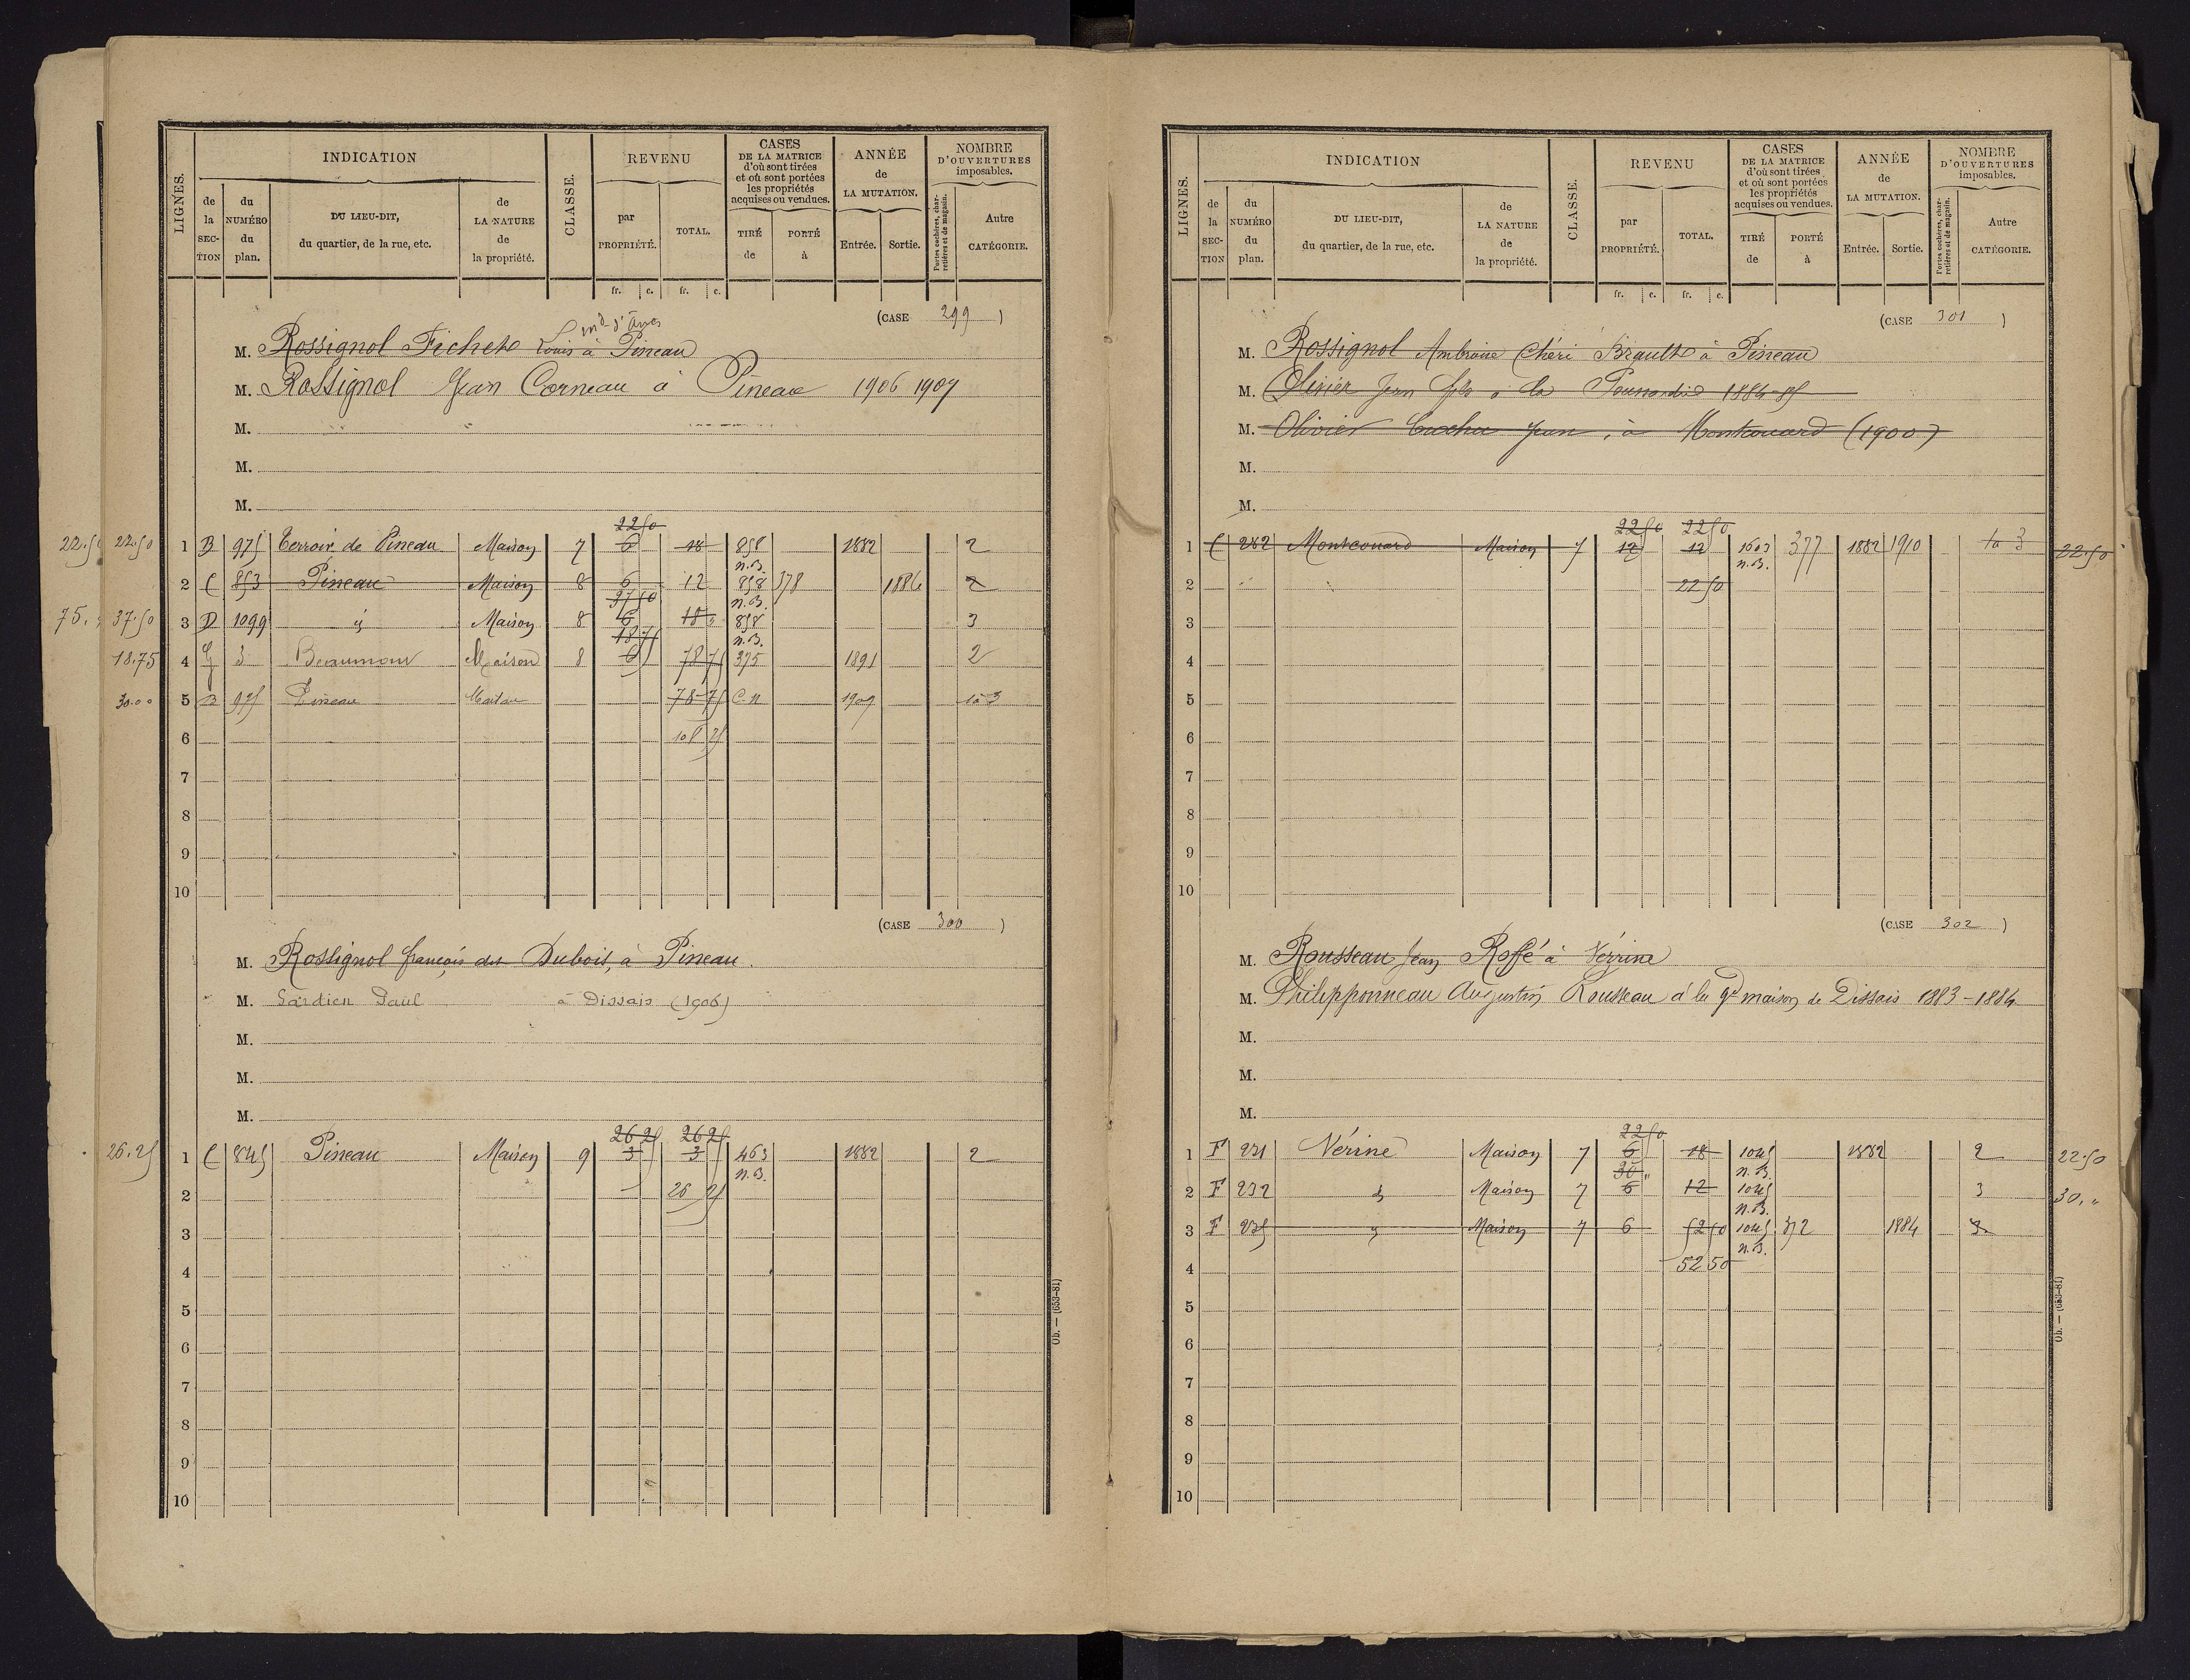 LIGNES. INDICATION CLASSE. REVENU CASES DE LA MATRICE d'où sont tirées et où sont portées les propriétés acquises ou vendues. ANNÉE de LA MUTATION. NOMBRE D'OUVERTURES imposables.
de la SECTION du NUMÉRO du plan. DU LIEU-DIT, du quartier, de la rue, etc. de LA NATURE de la propriété. par PROPRIÉTÉ. TOTAL. TIRÉ de PORTÉ à Entrée. Sortie. Portes cochères, charretières et de magasin. Autre CATÉGORIE.
fr. c. fr. c.
(CASE 299)
M. Rossignol Fichet Louis à Pineau
M. Rossignol Jean Corneau à Pineau 1906 1907
M.
M.
M.
22 50
22.50 22.50 1 B 975 Terroir de Pineau Maison 7 6 18 858 n.B. 1882 2
2 C 853 Pineau Maison 8 6 12 858 378 n.B. 1886 2
37 50
75. 37.50 3 D 1099 id Maison 8 6 18 858 n.B. 3
18 75
18.75 4 G 3 Beaumont Maison 8 6 78 75 375 1891 2
30.00 5 B 975 Pineau Maison 78 75 C.N 1907 1 à 3
6 108 75
7
8
9
10
(CASE 300)
M. Rossignol françois dit Dubois, à Pineau.
M. Gardien Paul à Dissais (1906)
M.
M.
M.
26 25 26 25
26.25 1 C 845 Pineau Maison 9 3 3 463 n.B. 1882 2
2 26 25
3
4
5
6
7
8
9
10
Ob. — (653-81)
LIGNES. INDICATION CLASSE. REVENU CASES DE LA MATRICE d'où sont tirées et où sont portées les propriétés acquises ou vendues. ANNÉE de LA MUTATION. NOMBRE D'OUVERTURES imposables.
de la SECTION du NUMÉRO du plan. DU LIEU-DIT, du quartier, de la rue, etc. de LA NATURE de la propriété. par PROPRIÉTÉ. TOTAL. TIRÉ de PORTÉ à Entrée. Sortie. Portes cochères, charretières et de magasin. Autre CATÉGORIE.
fr. c. fr. c.
(CASE 301)
M. Rossignol Ambroise Chéri Brault à Pineau
M. Olivier Jean fils à la 1884-85
M. Olivier Jean, à Montcouard (1900)
M.
M.
22 50 22 50
1 C 282 Montcouard Maison 7 12 12 1603 n.B. 377 1882 1910 1 à 3 22.50
2 22 50
3
4
5
6
7
8
9
10
(CASE 302)
M. Rousseau Jean Roffé à Vérrine
M. Philipponneau Augustin Rousseau à la gde maison de Dissais 1883-1884
M.
M.
M.
22 50
1 F 231 Vérine Maison 7 6 18 1045 n.B. 1882 2 22.50
30 "
2 F 232 id Maison 7 6 12 1045 n.B. 3 30. "
3 F 235 id Maison 7 6 52 50 1045 372 n.B. 1884 3
4 52 50
5
6
7
8
9
10
Ob. — (653-81)